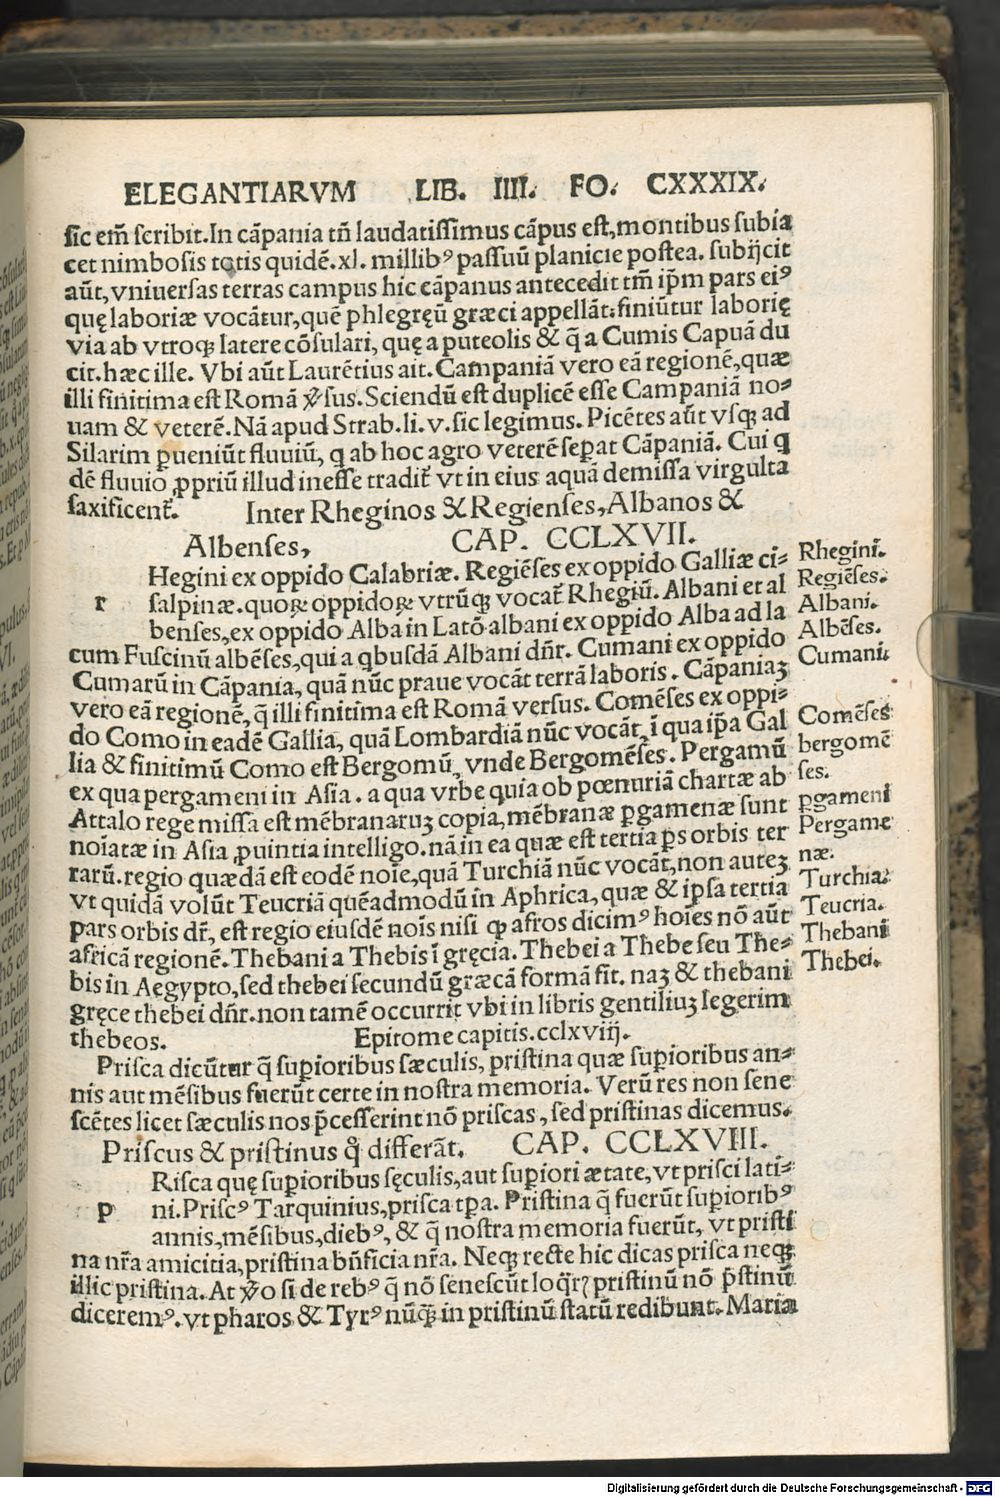 ELEGANTIARVM LIB. IIII. FO. CXXXIX.
ſic em̃ ſcribit.In cãpania tñ laudatiſſimus cãpus eſt,montibus ſubia
cet nimboſis totis quidẽ.xl. millibꝰ paſſuũ planicie poſtea. ſubijcit
aũt,vniuerſas terras campus hic cãpanus antecedit tm̃ ip̃m pars eiꝰ
quę laboriæ vocãtur,quẽ phlegręũ græci appellãt:finiũtur laborię
via ab vtroqꝫ latere cõſulari, quę a puteolis & q̃ a Cumis Capuã du
cit.hæc ille. Vbi aũt Laurẽtius ait.Campaniã vero eã regionẽ,quæ
illi finitima eſt Romã ꝟſus.Sciendũ eſt duplicẽ eſſe Campaniã no-
uam & veterẽ.Nã apud Strab.li.v.ſic legimus.Picẽtes aũt vſqꝫ ad
Silarim ꝑueniũt fluuiũ, q ab hoc agro veterẽ ſeꝑat Cãpaniã. Cui q
dẽ fluuio ꝓpriũ illud ineſſe tradit̃ vt in eius aquã demiſſa virgulta
ſaxificent̃.
Inter Rheginos & Regienſes,Albanos &
Albenſes, CAP. CCLXVII.
Hegini ex oppido Calabriæ. Regiẽſes ex oppido Galliæ ci-
r ſalpinæ.quoꝝ oppidoꝝ vtrũqꝫ vocat̃ Rhegiũ. Albani et al
benſes,ex oppido Alba in Latõ albani ex oppido Alba ad la
cum Fuſcinũ albẽſes,qui a qbuſdã Albani dñr. Cumani ex oppido
Cumarũ in Cãpania, quã nũc praue vocãt terrã laboris. Cãpaniaꝫ
vero eã regionẽ,q̃ illi finitima eſt Romã verſus. Comẽſes ex oppi-
do Como in eadẽ Gallia, quã Lombardiã nũc vocãt, ĩ qua ip̃a Gal
lia & finitimũ Como eſt Bergomũ, vnde Bergomẽſes. Pergamũ
ex qua pergameni in Aſia. a qua vrbe quia ob pœnuriã chartæ ab
Attalo rege miſſa eſt mẽbranaruꝫ copia,mẽbranæ ꝑgamenæ ſunt
noĩatæ in Aſia ꝓuintia intelligo.nã in ea quæ eſt tertia ꝑs orbis ter
rarũ.regio quædã eſt eodẽ noĩe,quã Turchiã nũc vocãt,non auteꝫ
vt quidã volũt Teucriã quẽadmodũ in Aphrica, quæ & ipſa tertia
pars orbis dr̃, eſt regio eiuſdẽ noĩs niſi ꝙ afros dicimꝰ hoĩes nõ aũt
africã regionẽ.Thebani a Thebis ĩ gręcia.Thebei a Thebe ſeu The-
bis in Aegypto,ſed thebei ſecundũ græcã formã fit. naꝫ & thebani
gręce thebei dñr.non tamẽ occurrit vbi in libris gentiliuꝫ legerim
thebeos. Epitome capitis.cclxviij.
Priſca dicũtur q̃ ſuꝑioribus ſæculis, priſtina quæ ſuꝑioribus an-
nis aut mẽſibus fuerũt certe in noſtra memoria. Verũ res non ſene
ſcẽtes licet ſæculis nos p̃ceſſerint nõ priſcas, ſed priſtinas dicemus.
Priſcus & priſtinus qͥ differãt. CAP. CCLXVIII.
Riſca quę ſuꝑioribus ſęculis,aut ſuꝑiori ætate,vt priſci lati-
p ni.Priſcꝰ Tarquinius,priſca tꝑa. Priſtina q̃ fuerũt ſuꝑioribꝰ
annis,mẽſibus,diebꝰ, & q̃ noſtra memoria fuerũt, vt priſti
na nr̃a amicitia,priſtina bñficia nr̃a. Neqꝫ recte hic dicas priſca neqꝫ
illic priſtina. At ꝟo ſi de rebꝰ q̃ nõ ſeneſcũt loq̃r? priſtinũ nõ p̃ſtinũ
diceremꝰ.vt pharos & Tyrꝰ nũqꝫ̃ in priſtinũ ſtatũ redibunt. Maria
Rhegini.
Regiẽſes.
Albani.
Albẽſes.
Cumani.
Comẽſes
bergomẽ
ſes.
ꝑgameni
Pergame
næ.
Turchia.
Teucria.
Thebani
Thebei.
Digitalisierung gefördert durch die Deutsche Forschungsgemeinschaft - DFG